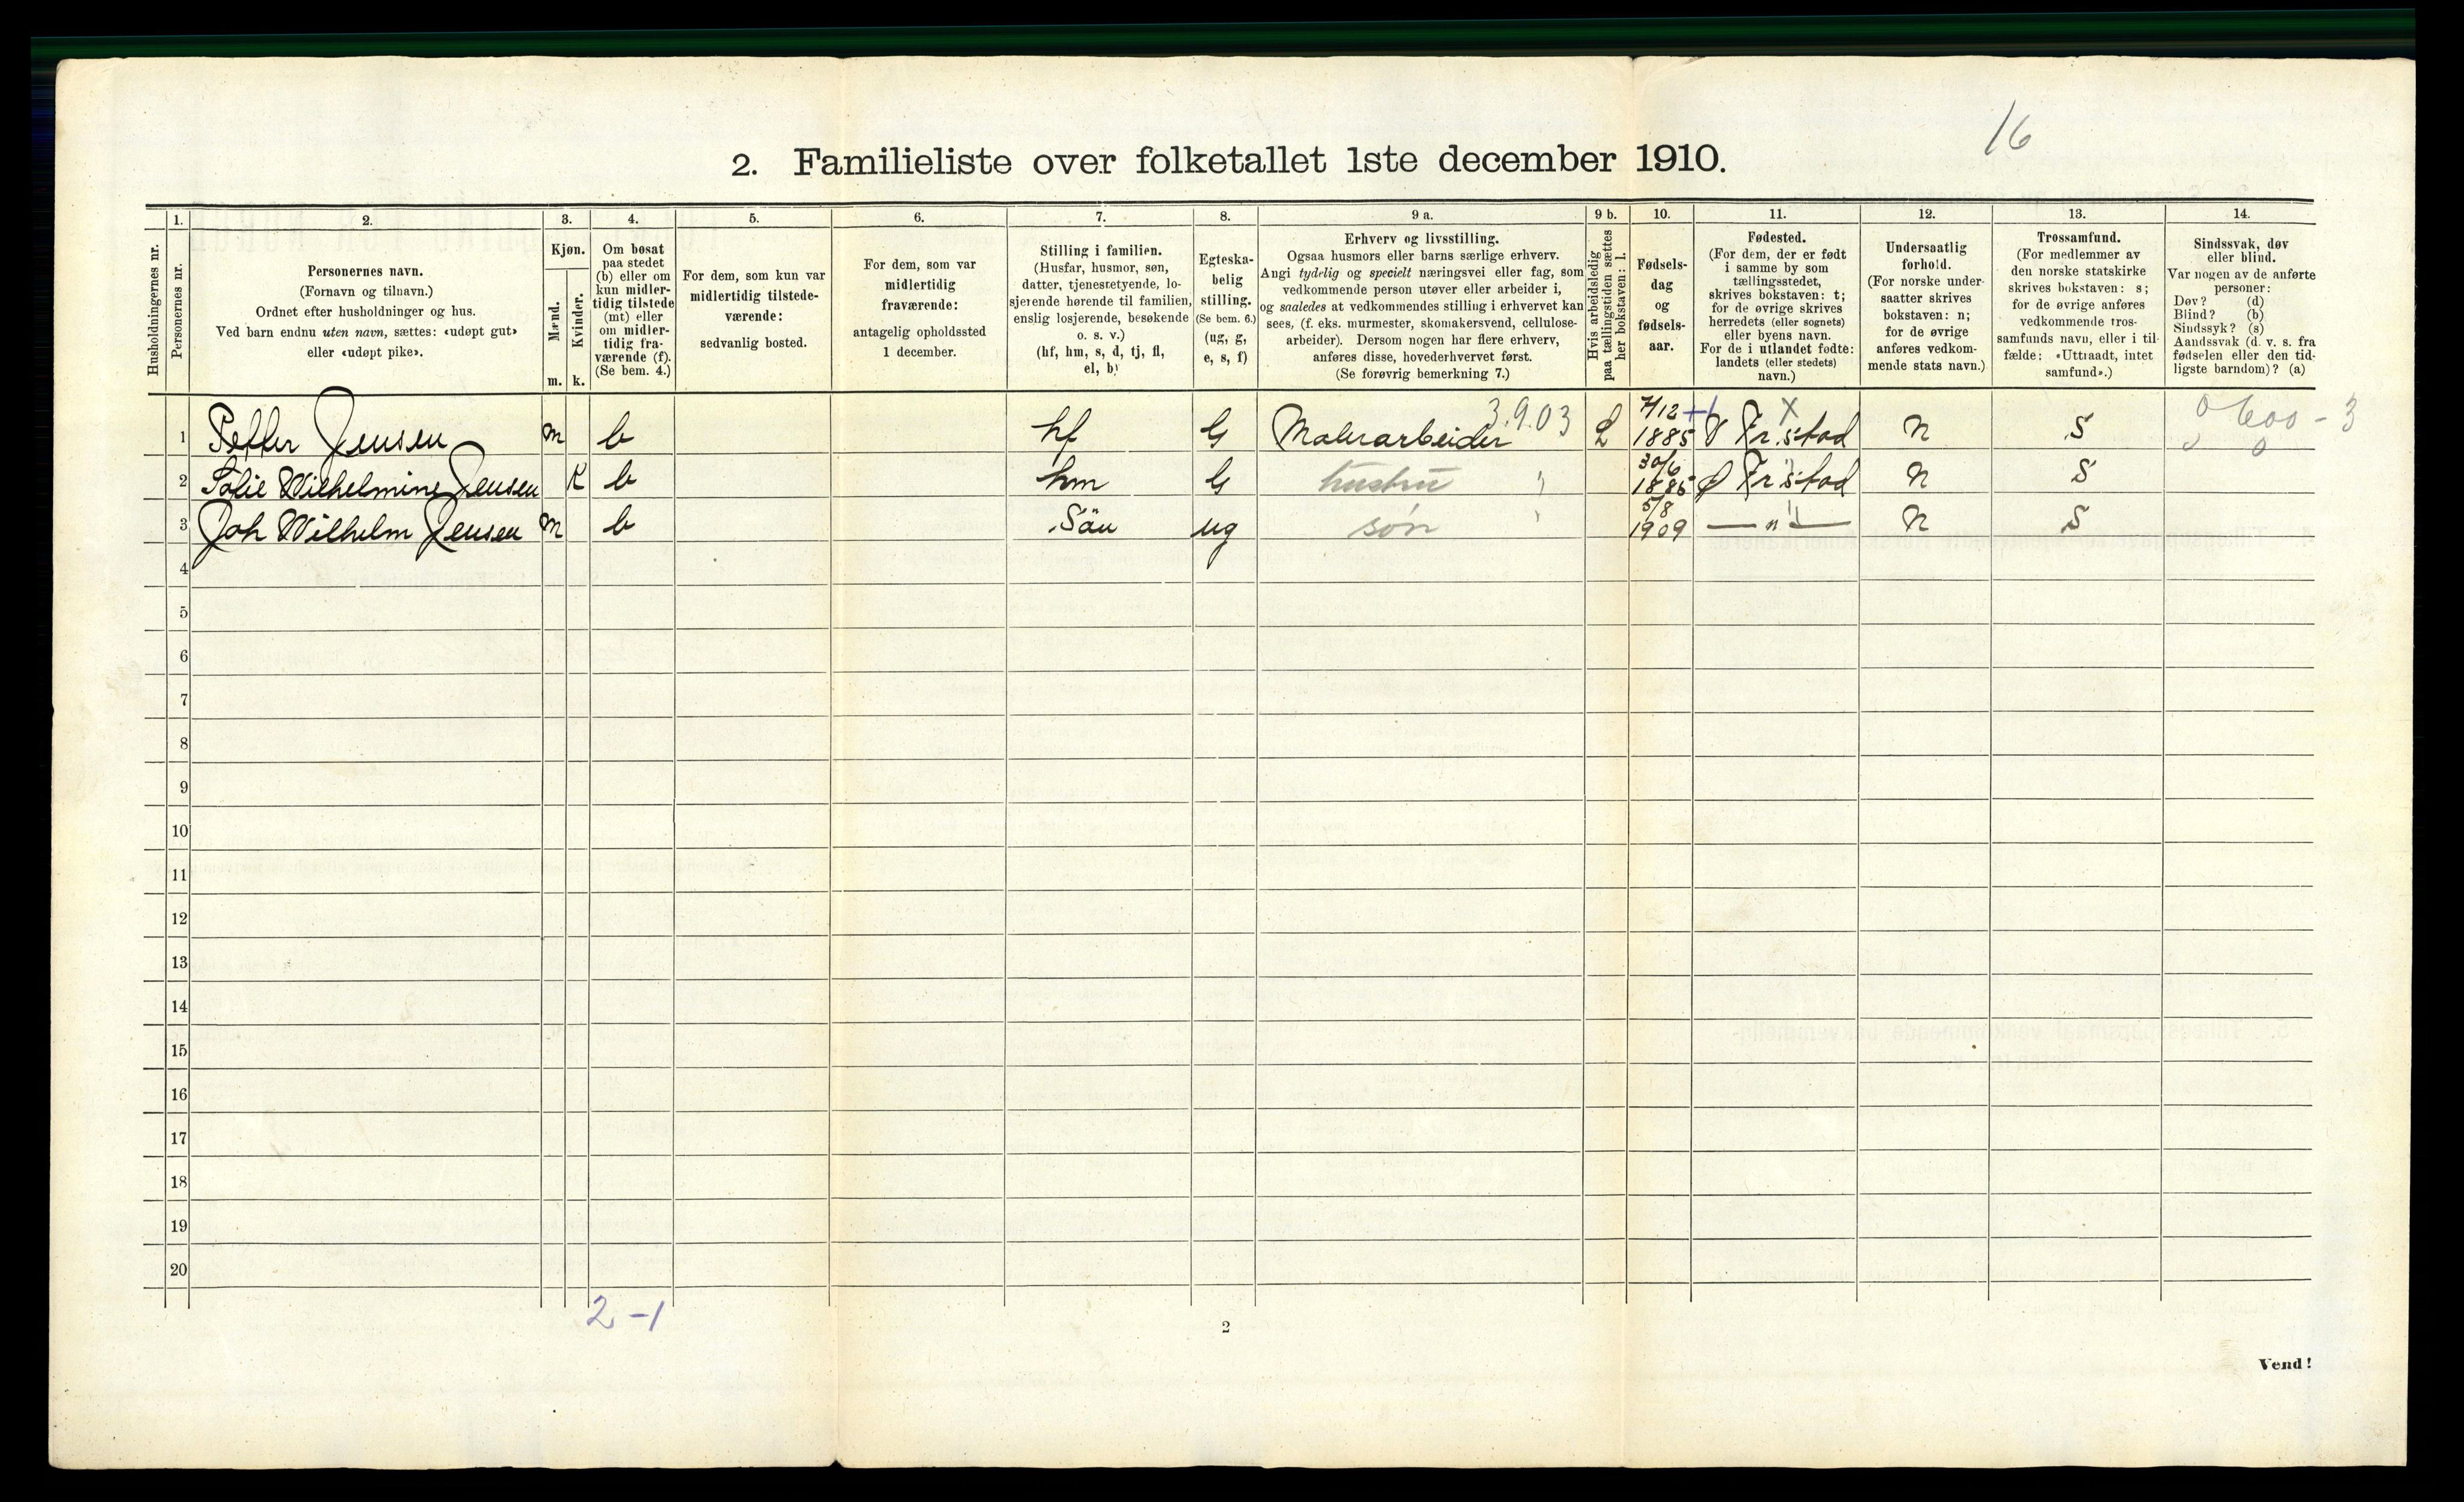 16
2. Familieliste over folketallet 1ste december 1910.
1. 2. 3. 4. 5. 6. 7. 8. 9 a. 9 b. 10. 11. 12. 13. 14.
Husholdningernes nr.
Personernes nr.
Personernes navn.
(Fornavn og tilnavn.)
Ordnet efter husholdninger og hus.
Ved barn endnu uten navn, sættes: «udøpt gut»
eller «udøpt pike».
Kjøn.
Mænd.
Kvinder.
m. k.
Om bosat
paa stedet
(b) eller om
kun midler-
tidig tilstede
(mt) eller
om midler-
tidig fra-
værende (f).
(Se bem. 4.)
For dem, som kun var
midlertidig tilstede-
værende:
sedvanlig bosted.
For dem, som var
midlertidig
fraværende:
antagelig opholdssted
1 december.
Stilling i familien.
(Husfar, husmor, søn,
datter, tjenestetyende, lo-
sjerende hørende til familien,
enslig losjerende, besøkende
o. s. v.)
(hf, hm, s, d, tj, fl,
el, b)
Egteska-
belig
stilling.
(Se bem. 6.)
(ug, g,
e, s, f)
Erhverv og livsstilling.
Ogsaa husmors eller barns særlige erhverv.
Angi tydelig og specielt næringsvei eller fag, som
vedkommende person utøver eller arbeider i,
og saaledes at vedkommendes stilling i erhvervet kan
sees, (f. eks. murmester, skomakersvend, cellulose-
arbeider). Dersom nogen har flere erhverv,
anføres disse, hovederhvervet først.
(Se forøvrig bemerkning 7.)
Hvis arbeidsledig
paa tællingstiden sættes
her bokstaven: l.
Fødsels-
dag
og
fødsels-
aar.
Fødested.
(For dem, der er født
i samme by som
tællingsstedet,
skrives bokstaven: t;
for de øvrige skrives
herredets (eller sognets)
eller byens navn.
For de i utlandet fødte:
landets (eller stedets)
navn.)
Undersaatlig
forhold.
(For norske under-
saatter skrives
bokstaven: n;
for de øvrige
anføres vedkom-
mende stats navn.)
Trossamfund.
(For medlemmer av
den norske statskirke
skrives bokstaven: s;
for de øvrige anføres
vedkommende tros-
samfunds navn, eller i til-
fælde: «Uttraadt, intet
samfund».)
Sindssvak, døv
eller blind.
Var nogen av de anførte
personer:
Døv? (d)
Blind? (b)
Sindssyk? (s)
Aandssvak (d. v. s. fra
fødselen eller den tid-
ligste barndom)? (a)
3.9.03 7/12 +1 X 0 600 - 3
1 Petter Jensen m b hf G Malerarbeider L 1885 V Fr.stad N S 0
30/6
2 Sofie Wilhelmine Jensen K b hm G hustru " 1885 Ø Fr.stad N S
5/8
3 Joh Wilhelm Jensen m b Sön ug søn " 1909 — " — N S
4
5
6
7
8
9
10
11
12
13
14
15
16
17
18
19
20
2 -1
2
Vend!